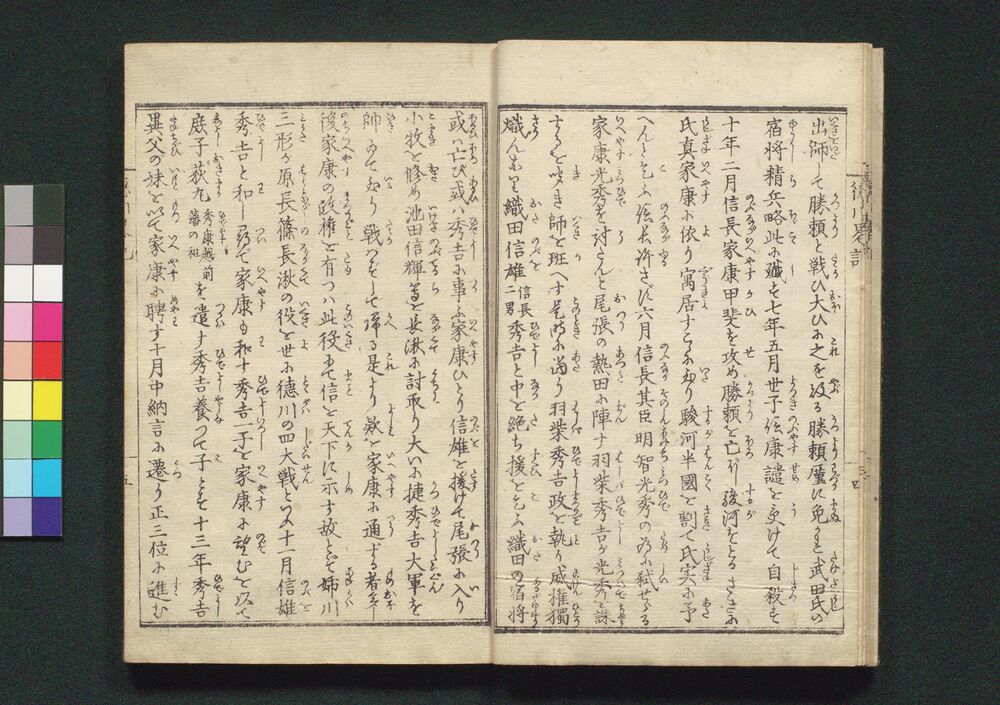 出師して勝頼と戦ひ大ひに之を敗る勝頼僅に免かる武田氏の
宿将精兵略此に殲す七年五月世子信康譴を受けて自殺す
十年二月信長家康甲斐を攻め勝頼を亡ぼし駿河をとる さきに
氏真家康に依り寓居す こゝに至り駿河半國を割て氏実に予
へんとこふ信長許さず六月信長其臣明智光秀の為に弑せらる
家康光秀を討たんと尾張の熱田に陣す羽柴秀吉が光秀を誅
するを聞き師を班へす是時に当り羽柴秀吉政を執り威権獨
熾んなり織田信雄信長二男秀吉と中を絶ち援をこふ織田の宿将
或ハ亡び或ハ秀吉に事ふ家康ひとり信雄を援けて尾張に入り
小牧を修め池田信輝等を長湫に討取り大いに捷秀吉大軍を
帥ゐて至り戦ハずして帰る是より歟を家康に通ずる者多し
後家康の政権を有つハ此役にて信を天下に示す故とぞ姉川
三形が原長篠長湫の役を世に徳川の四大戦といふ十一月信雄
秀吉と和し尋て家康も和す秀吉一子を家康に望むを以て
庶子荻丸秀康越前藩の祖を遣す秀吉養つて子とす十三年秀吉
異父の妹を以て家康に聘す十月中納言に遷り正三位に進む